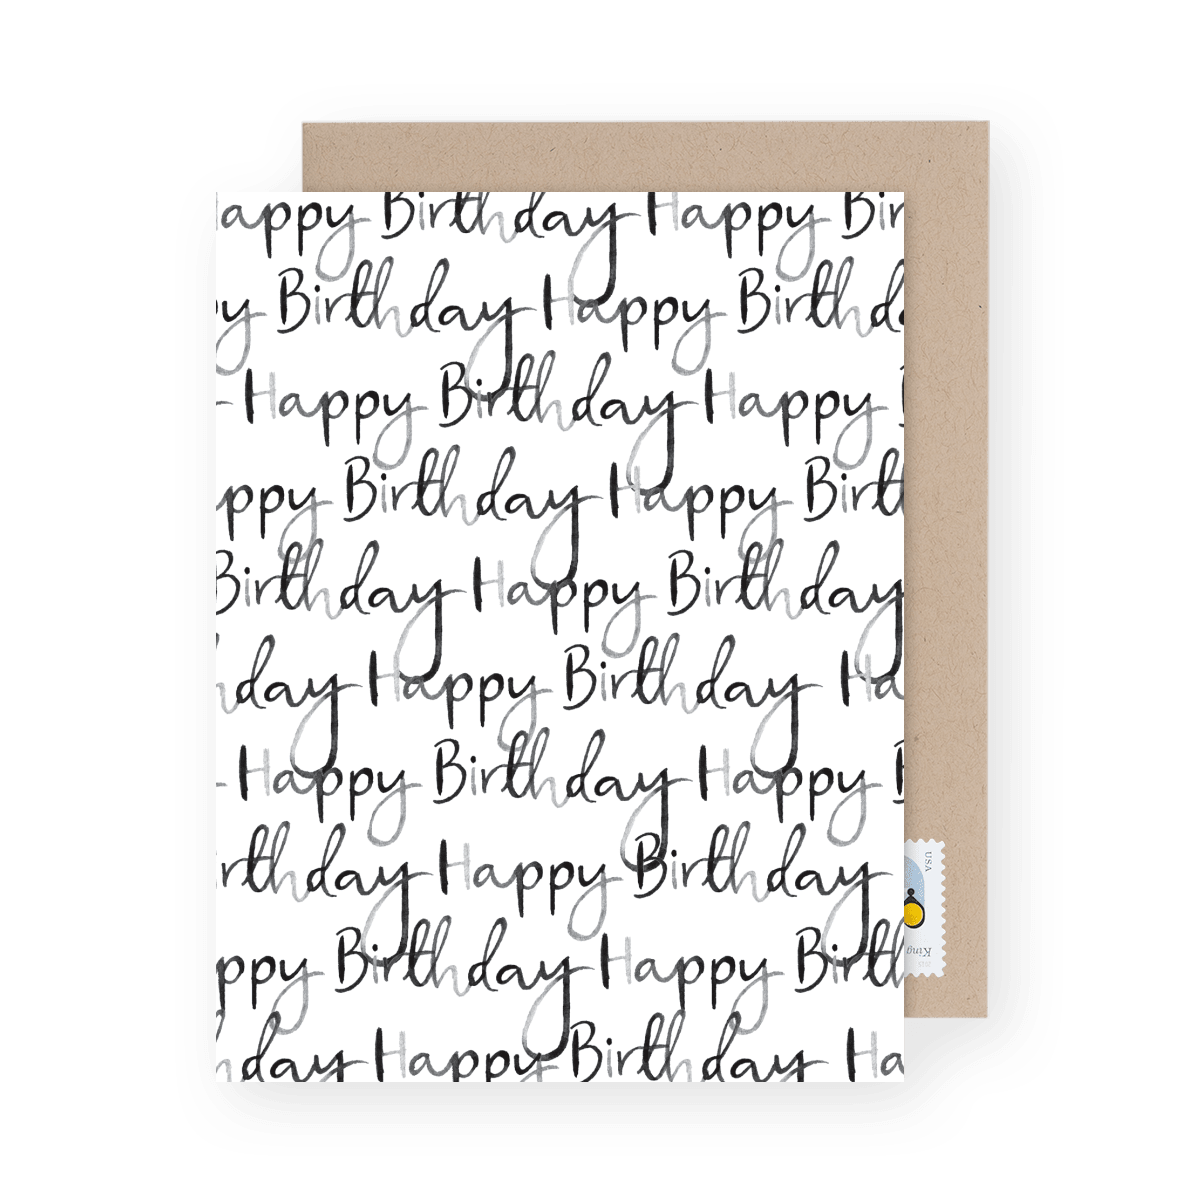 appy Birthday Happy Bir
y Birthday Happy Birthd
Happy Birthday Happy B
ppy Birthday Happy Birt
Birthday Happy Birthday
day Happy Birthday Ha
Happy Birthday Happy B
rthday Happy Birthday
ppy Birthday Happy Birth
hday Happy Birthday Ha
USA
King